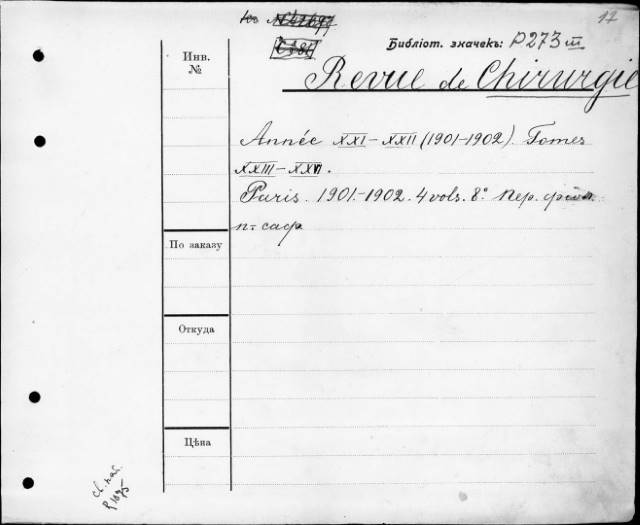 17
Библіот. значекъ: P273 III
Revue de Chirurgie
Année XXI–XXII (1901–1902). Tomes
XXIII–XXVI.
Paris. 1901–1902. 4 vols. 8°. Пер.
п. саф
Инв.
№
По заказу
Откуда
Цѣна